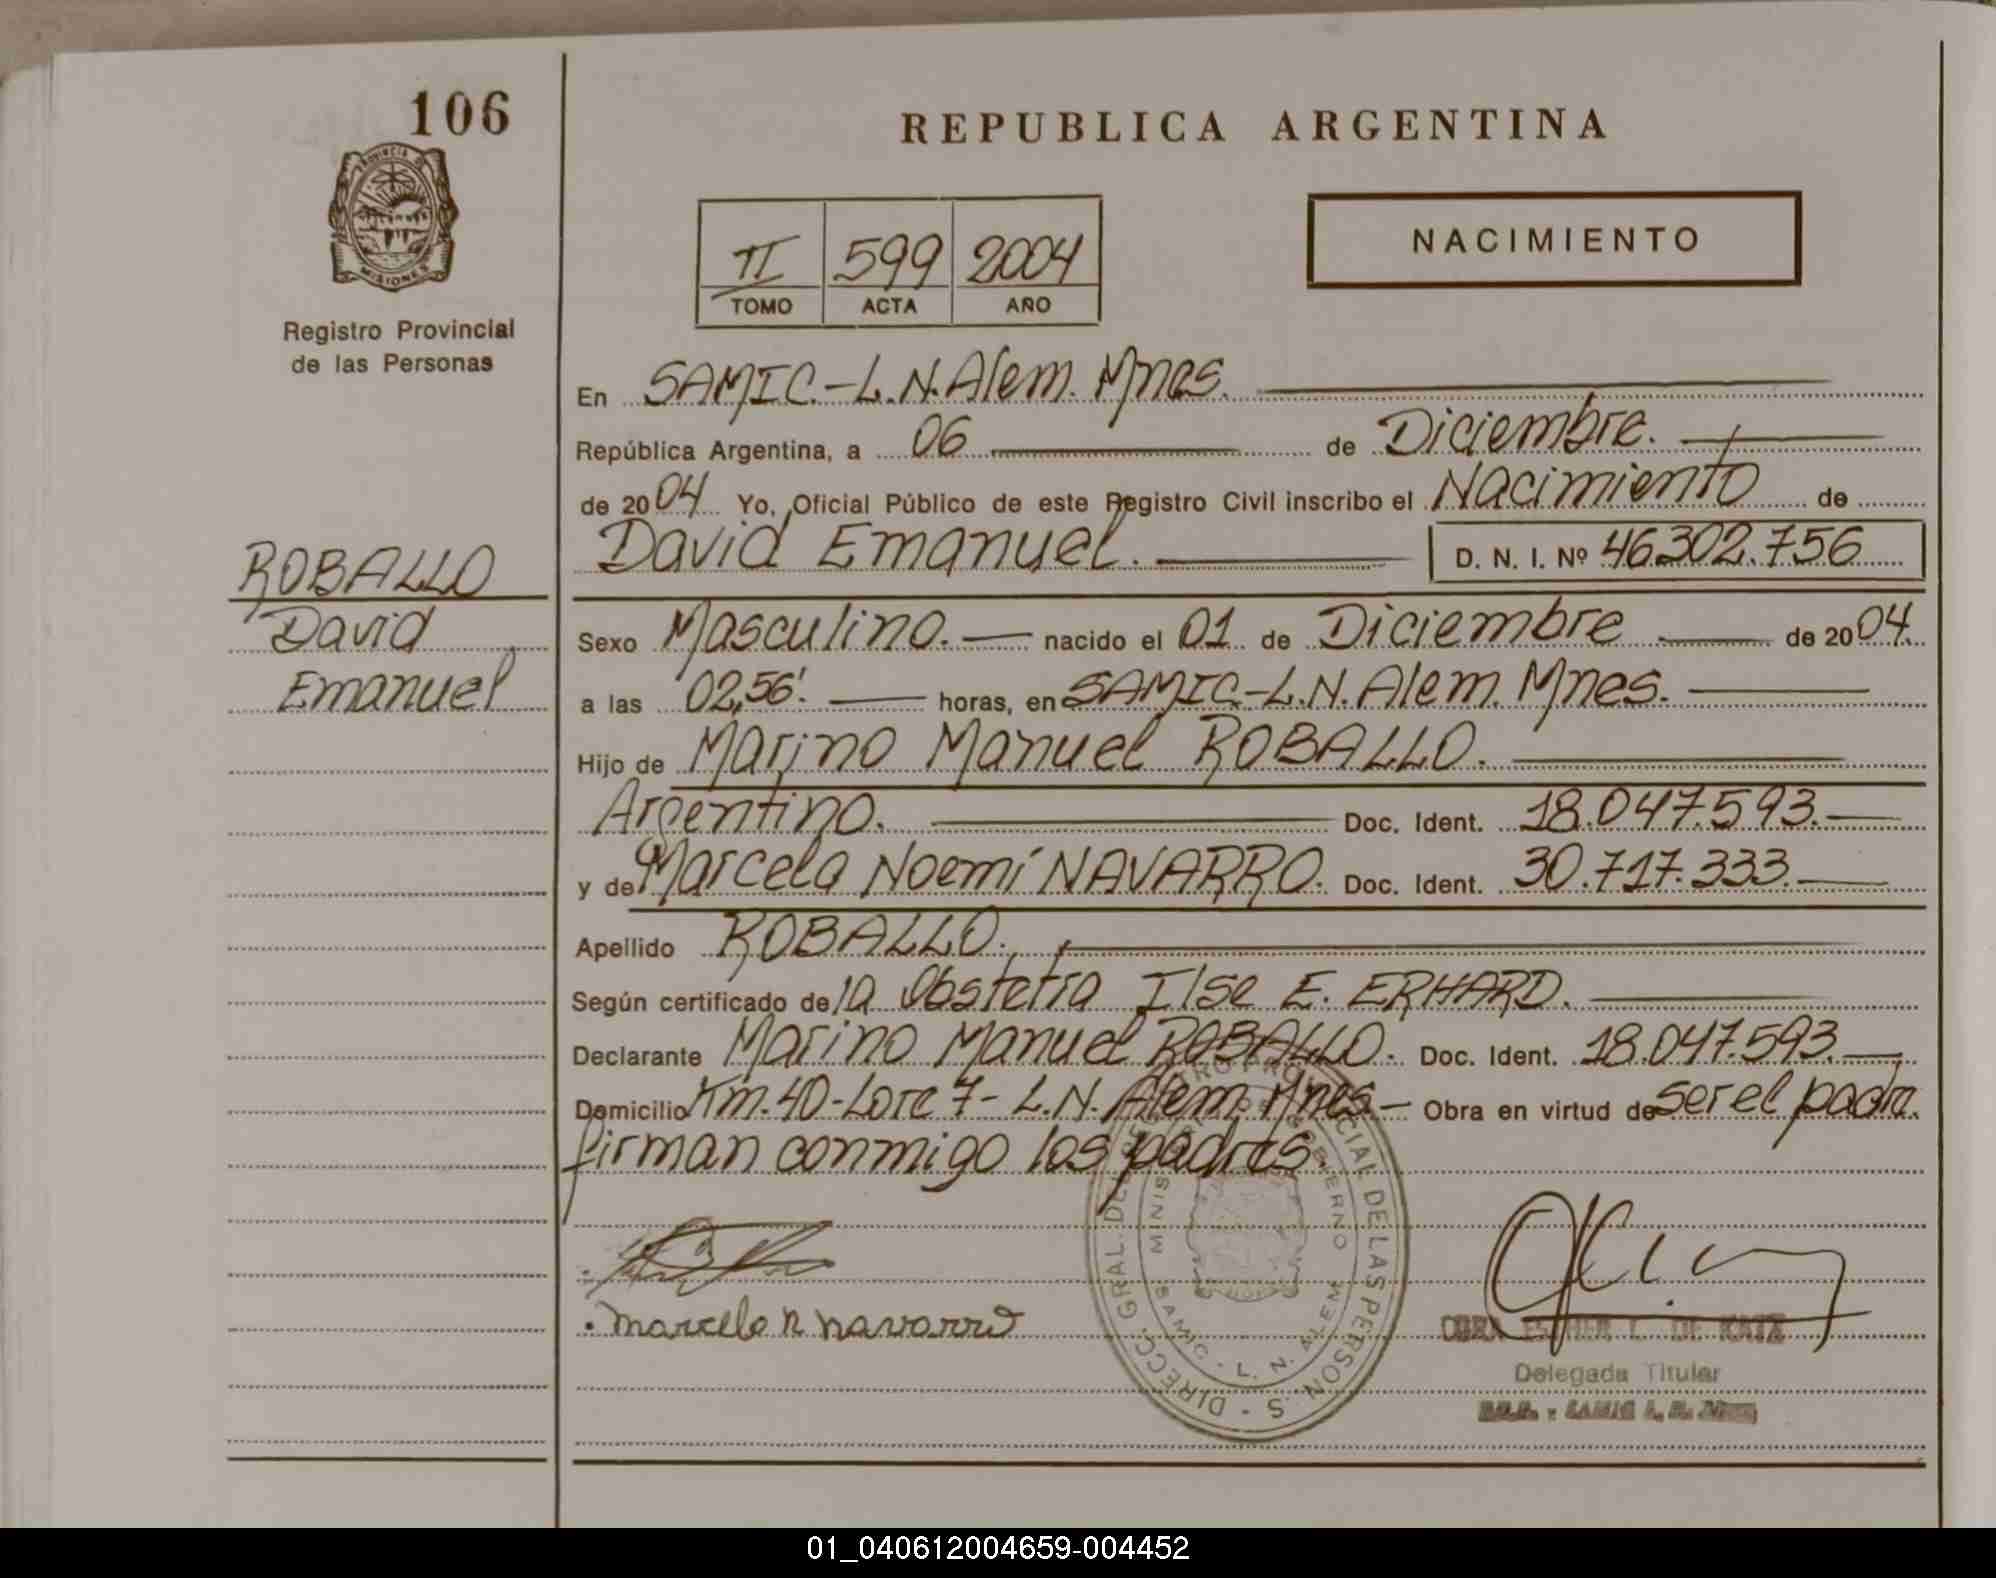 106
PROVINCIA DE
MISIONES
Registro Provincial
de las Personas
ROBALLO
David
Emanuel
REPUBLICA ARGENTINA
II 599 2004
TOMO ACTA AÑO
NACIMIENTO
En SAMIC.-L.N.Alem. Mnes.
República Argentina, a 06 de Diciembre.
de 2004 Yo, Oficial Público de este Registro Civil inscribo el Nacimiento de
David Emanuel. D. N. I. Nº 46302.756
Sexo Masculino. nacido el 01 de Diciembre de 2004.
a las 02,56'. horas, en SAMIC-L.N. Alem. Mnes.
Hijo de Marino Manuel ROBALLO.
Argentino. Doc. Ident. 18.047.593.
y de Marcela Noemí NAVARRO. Doc. Ident. 30.717.333.
Apellido ROBALLO.
Según certificado de la Obstetra Ilse E. ERHARD.
Declarante Marino Manuel ROBALLO. Doc. Ident. 18.047.593.
Domicilio Km. 40-Lote 7- L.N. Alem. Mnes- Obra en virtud de ser el padre.
firman conmigo los padres.
marcela n navarro
DIRECC. GRAL. DEL REGISTRO PROVINCIAL DE LAS PERSONAS
MINIST. DE GOBIERNO
SAMIC - L. N. ALEM
ESTHER L. DE KATZ
Delegada Titular
01_040612004659-004452